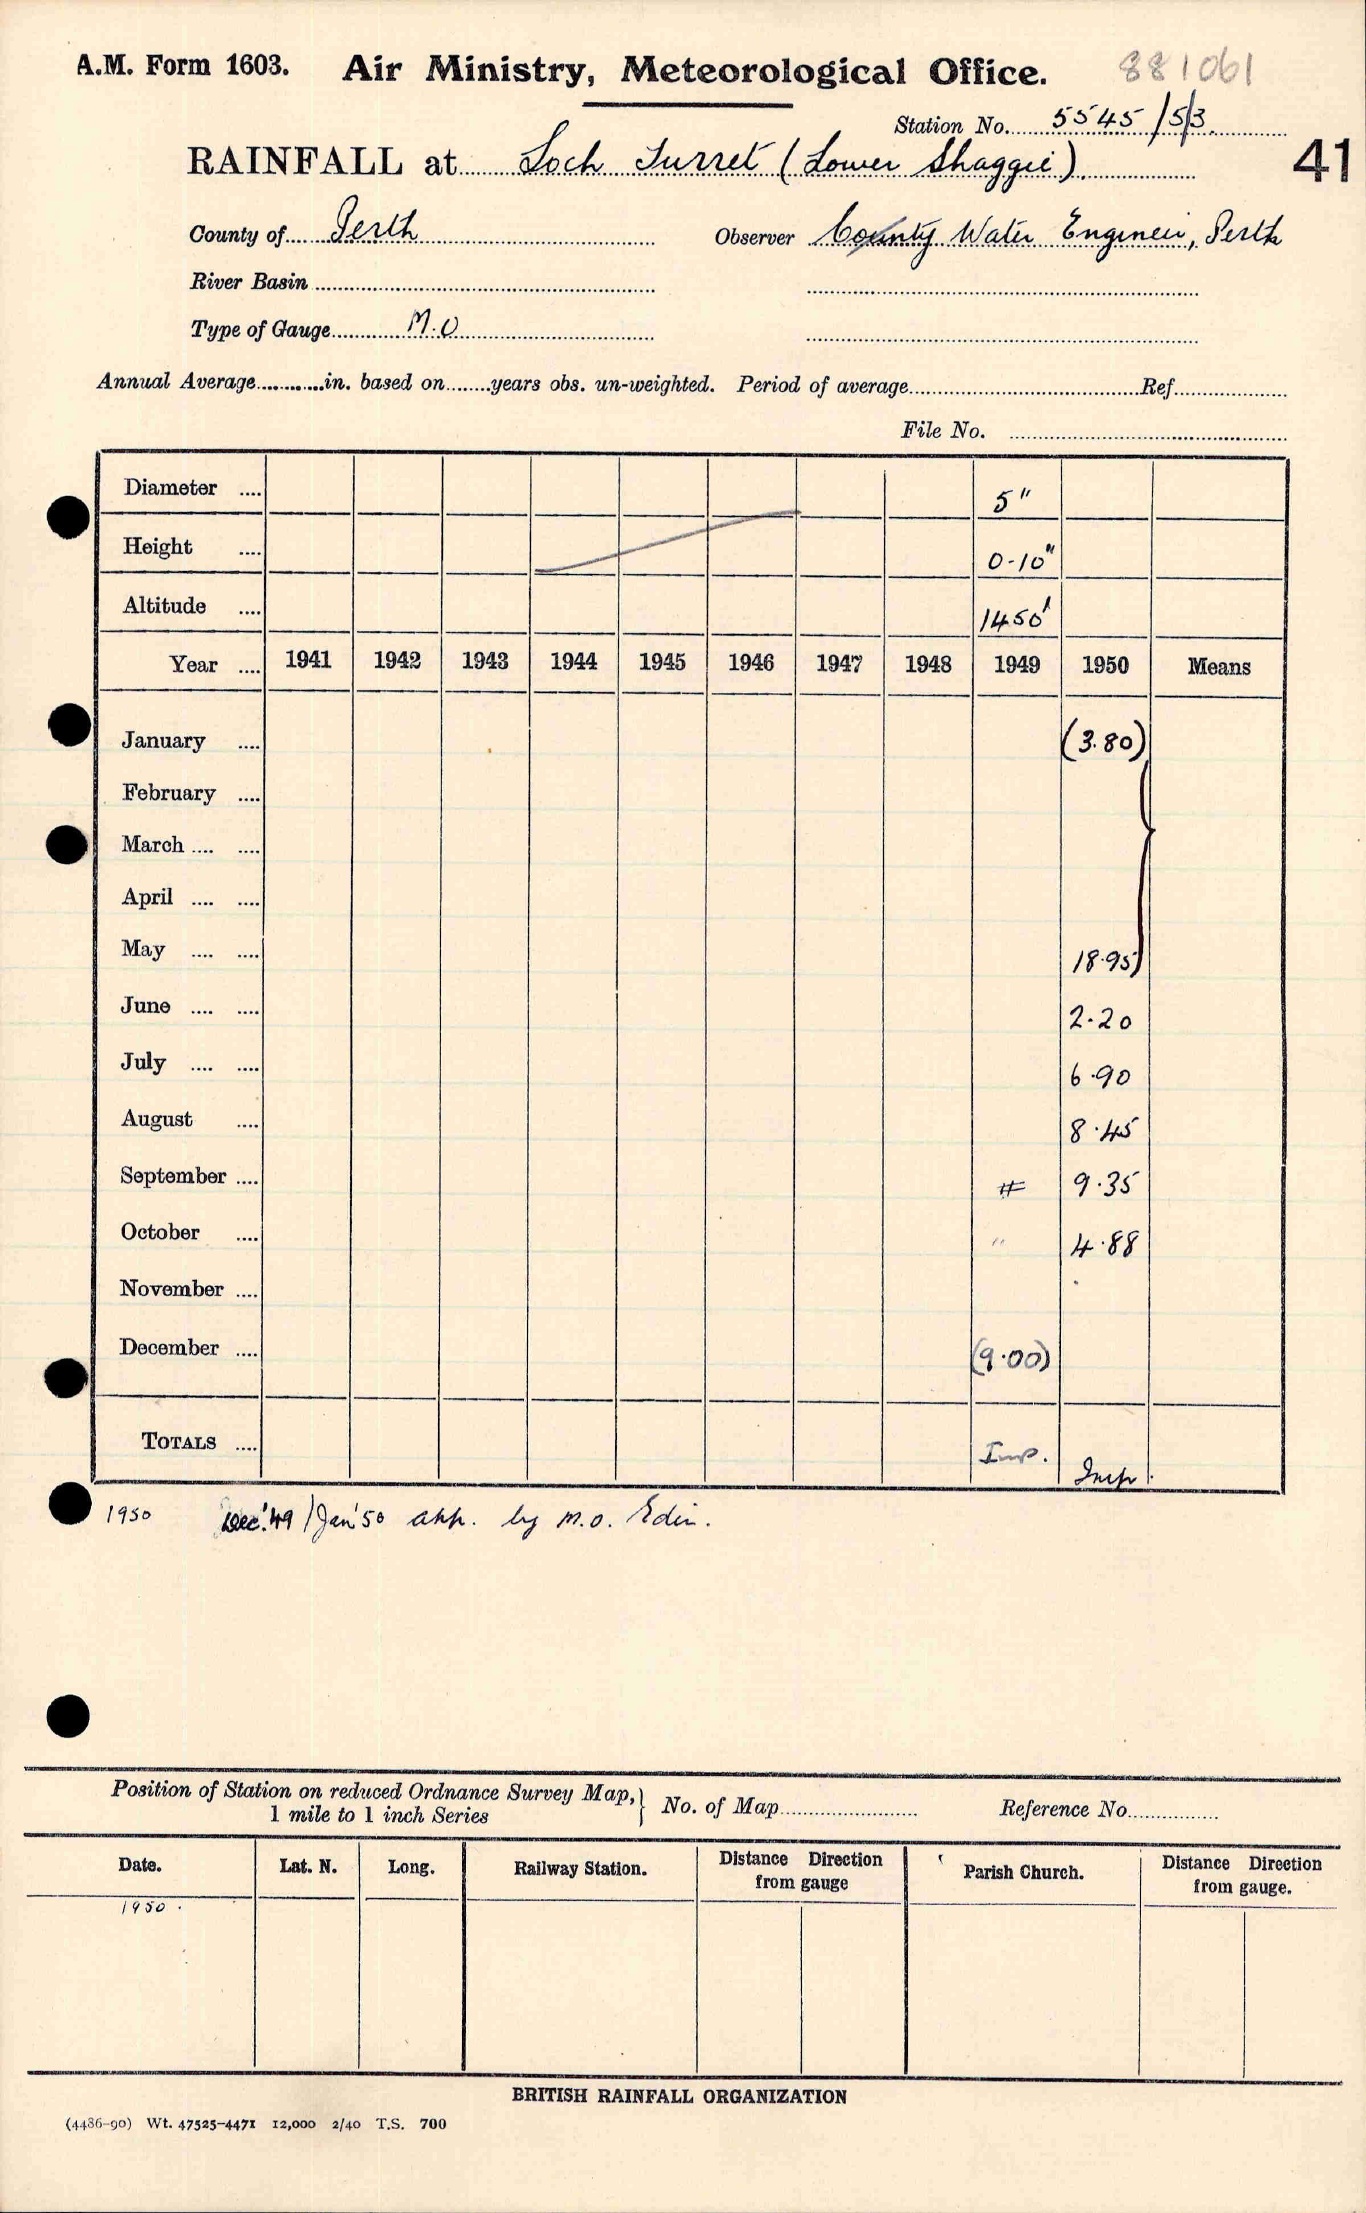 A.M. Form 1603. Air Ministry, Meteorological Office. 881061
Station No. 5545/5/3.
RAINFALL at Loch Turret (Lower Shaggie). 41
County of Perth Observer County Water Engineer, Perth
River Basin
Type of Gauge M.O
Annual Average in. based on years obs. un-weighted. Period of average Ref
File No.
Diameter 5"
Height 0-10"
Altitude 1450'
Year 1941 1942 1943 1944 1945 1946 1947 1948 1949 1950 Means
January (3.80)
February
March
April
May 18.95
June 2.20
July 6.90
August 8.45
September # 9.35
October " 4.88
November
December (9.00)
TOTALS Imp. Imp.
1950 Dec.'49/Jan'50 app. by M.O. Edin.
Position of Station on reduced Ordnance Survey Map,} No. of Map Reference No.
1 mile to 1 inch Series
Date. Lat. N. Long. Railway Station. Distance Direction from gauge Parish Church. Distance Direction from gauge.
1950.
BRITISH RAINFALL ORGANIZATION
(4486-90) Wt. 47525-4471 12,000 2/40 T.S. 700